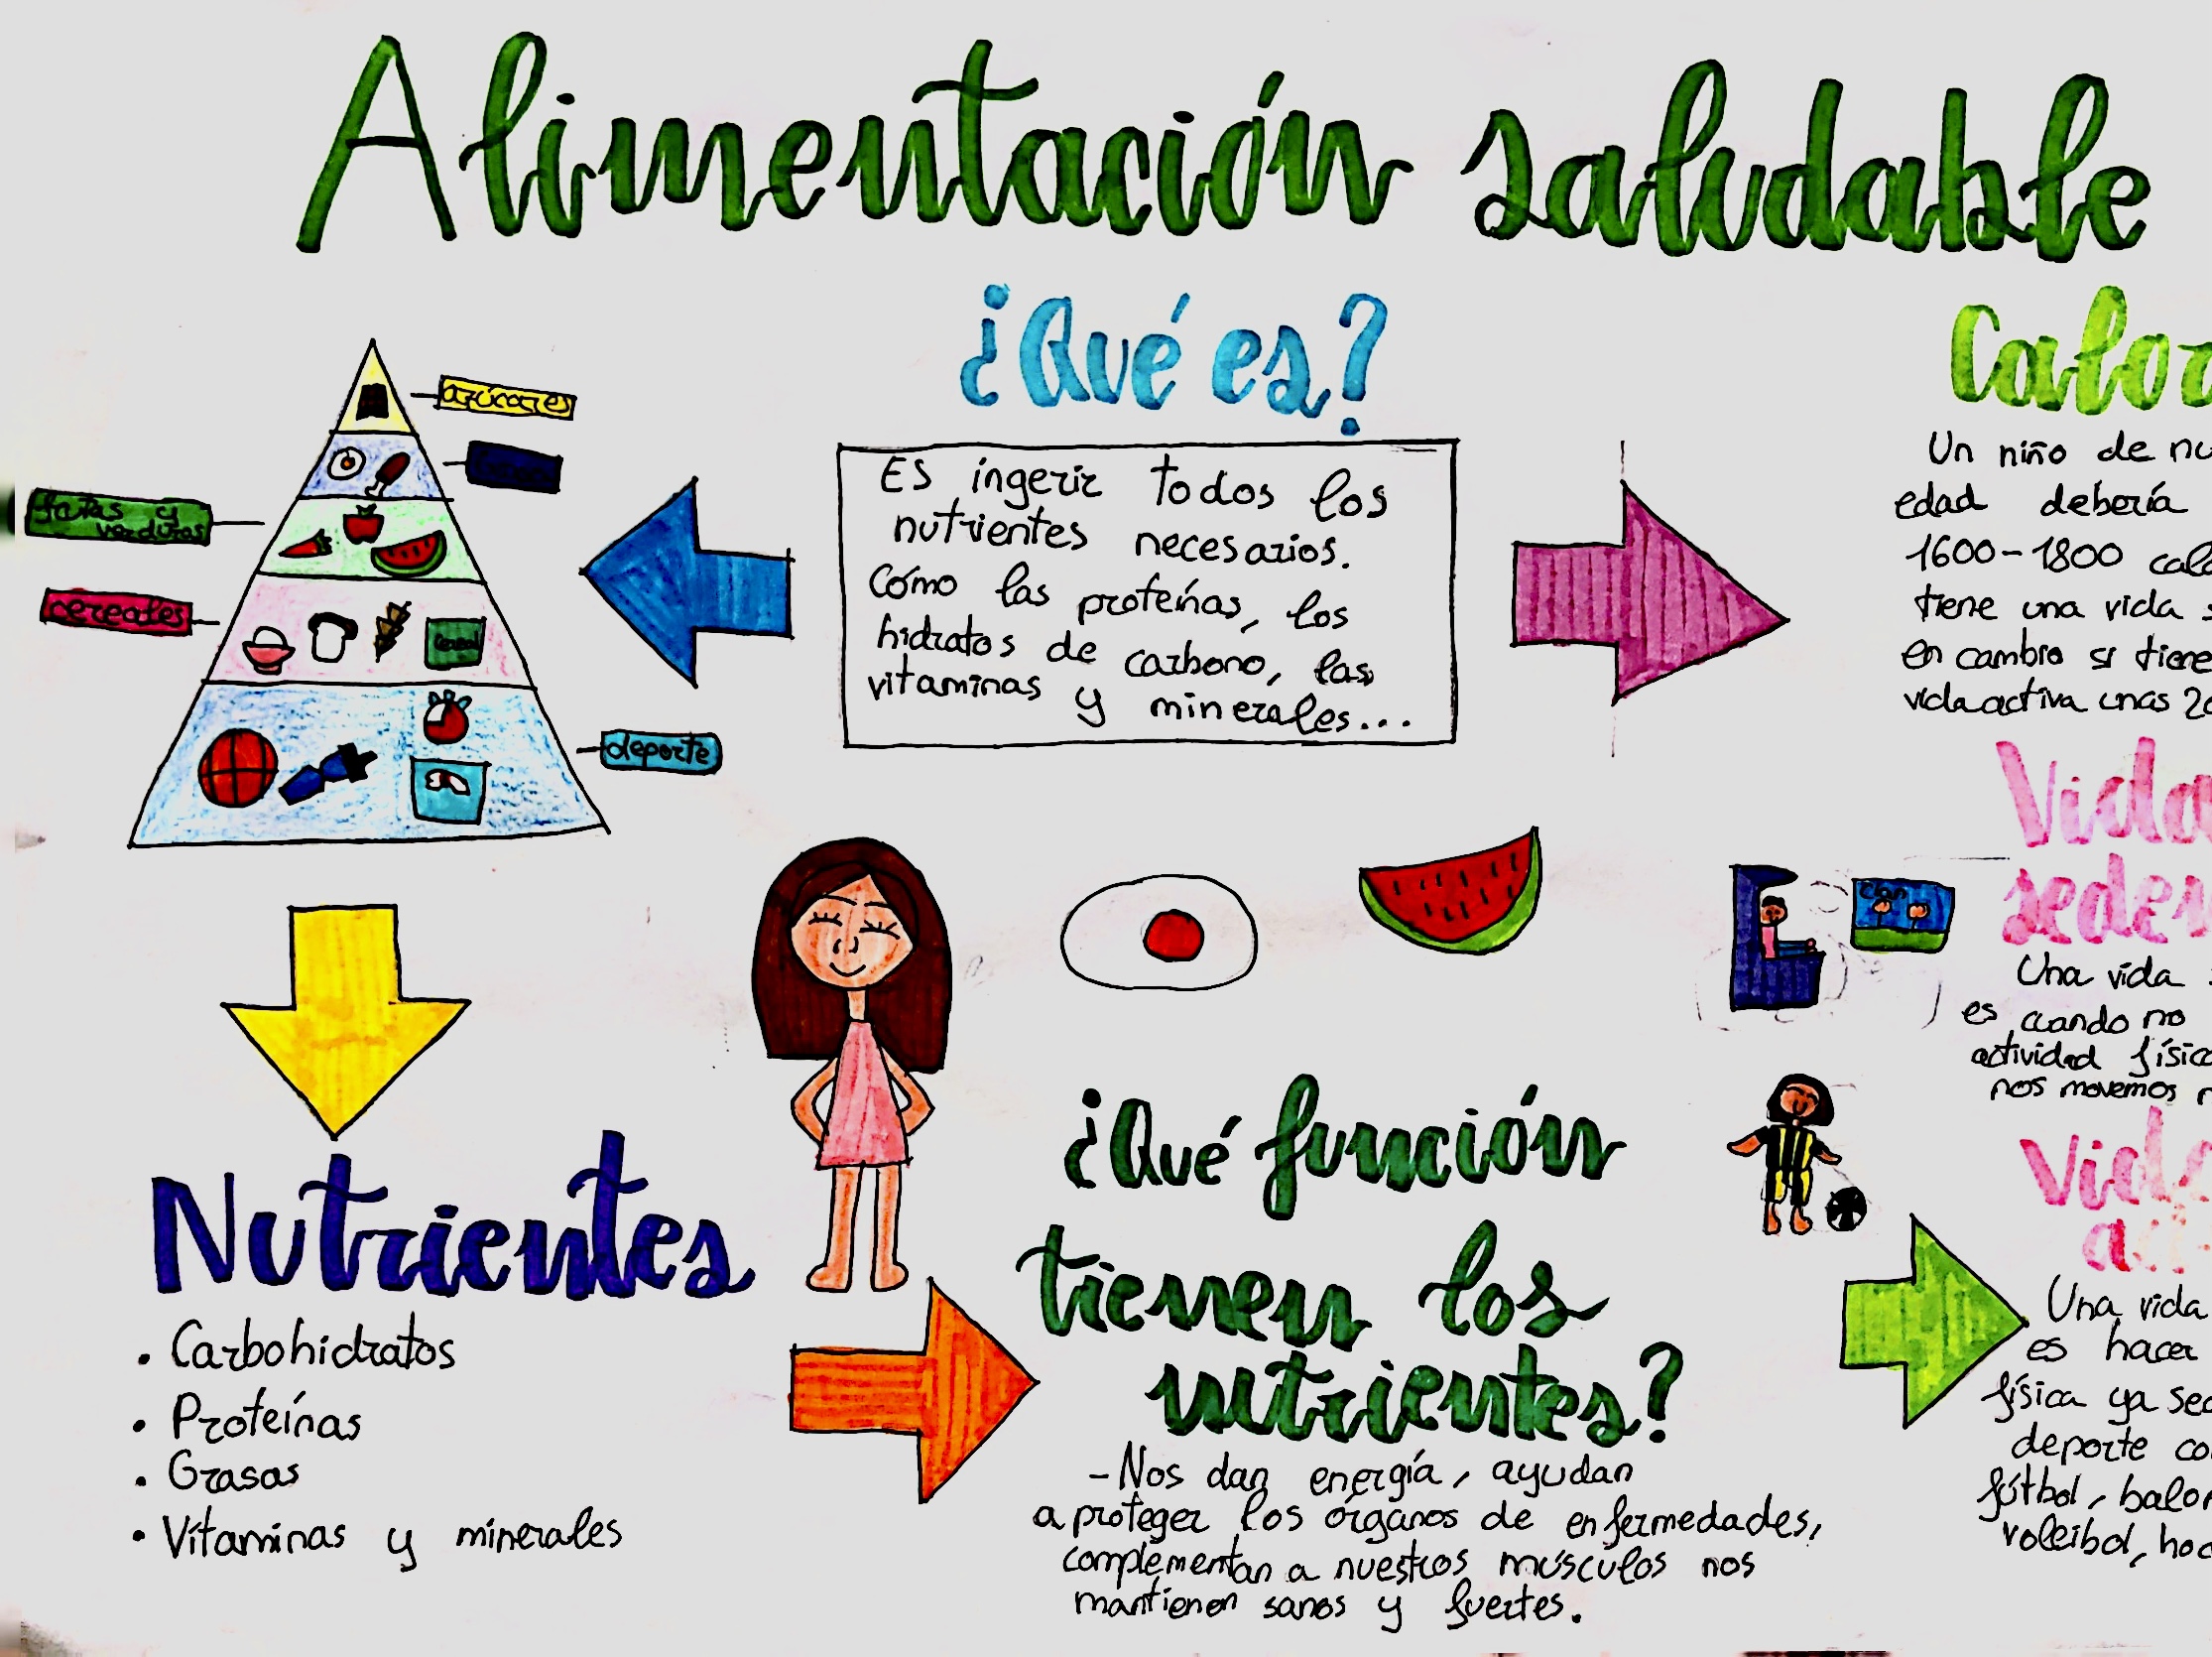 Alimentación saludable
¿Qué es?
Es ingerir todos los
nutrientes necesarios.
Cómo las proteínas, los
hidratos de carbono, las
vitaminas y minerales...
azúcares
frutas y
verduras
cereales
cereal
deporte
Nutrientes
• Carbohidratos
• Proteínas
• Grasas
• Vitaminas y minerales
¿Qué función
tienen los
nutrientes?
-Nos dan energía, ayudan
a proteger los órganos de enfermedades,
complementan a nuestros músculos nos
mantienen sanos y fuertes.
Calor
Un niño de nu
edad debería
1600-1800 calo
tiene una vida s
en cambio si tiene
vida activa unas 20
Vida
seden
clan
Una vida s
es cuando no
actividad física
nos movemos
Vida
Una vida
es hacer
física ya sea
deporte co
fútbol, balon
voleibol, hoc